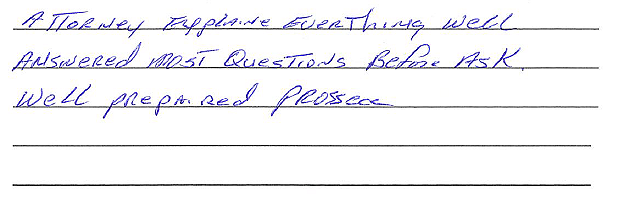 Attorney Explaine Everthing well
Answered most Questions Before Ask.
Well prepaired Prossece